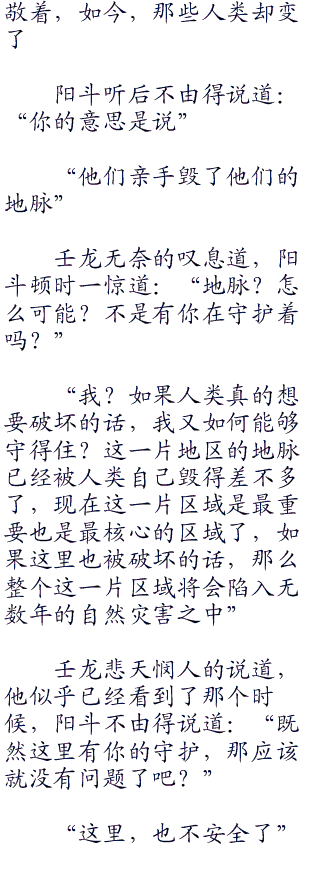 敬着，如今，那些人类却变
了
阳斗听后不由得说道：
“你的意思是说”
“他们亲手毁了他们的
地脉”
壬龙无奈的叹息道，阳
斗顿时一惊道：“地脉？怎
么可能？不是有你在守护着
吗？”
“我？如果人类真的想
要破坏的话，我又如何能够
守得住？这一片地区的地脉
已经被人类自己毁得差不多
了，现在这一片区域是最重
要也是最核心的区域了，如
果这里也被破坏的话，那么
整个这一片区域将会陷入无
数年的自然灾害之中”
壬龙悲天悯人的说道，
他似乎已经看到了那个时
候，阳斗不由得说道：“既
然这里有你的守护，那应该
就没有问题了吧？”
“这里，也不安全了”